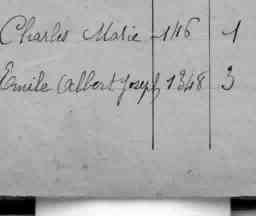 Charles Marie 146 1
Emile Albert Joseph 1348 3